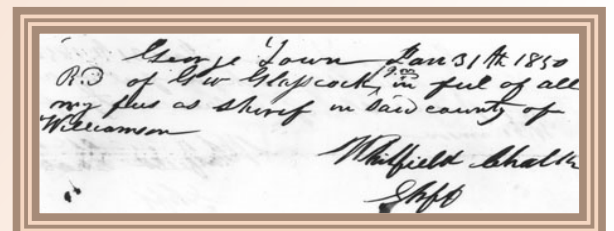 George Town Jan 31th 1850
R.D of GW Glasscock 9.00 in ful of all
my fees as Sherif in said county of
Williamson
Whitfield Chalk
Shff